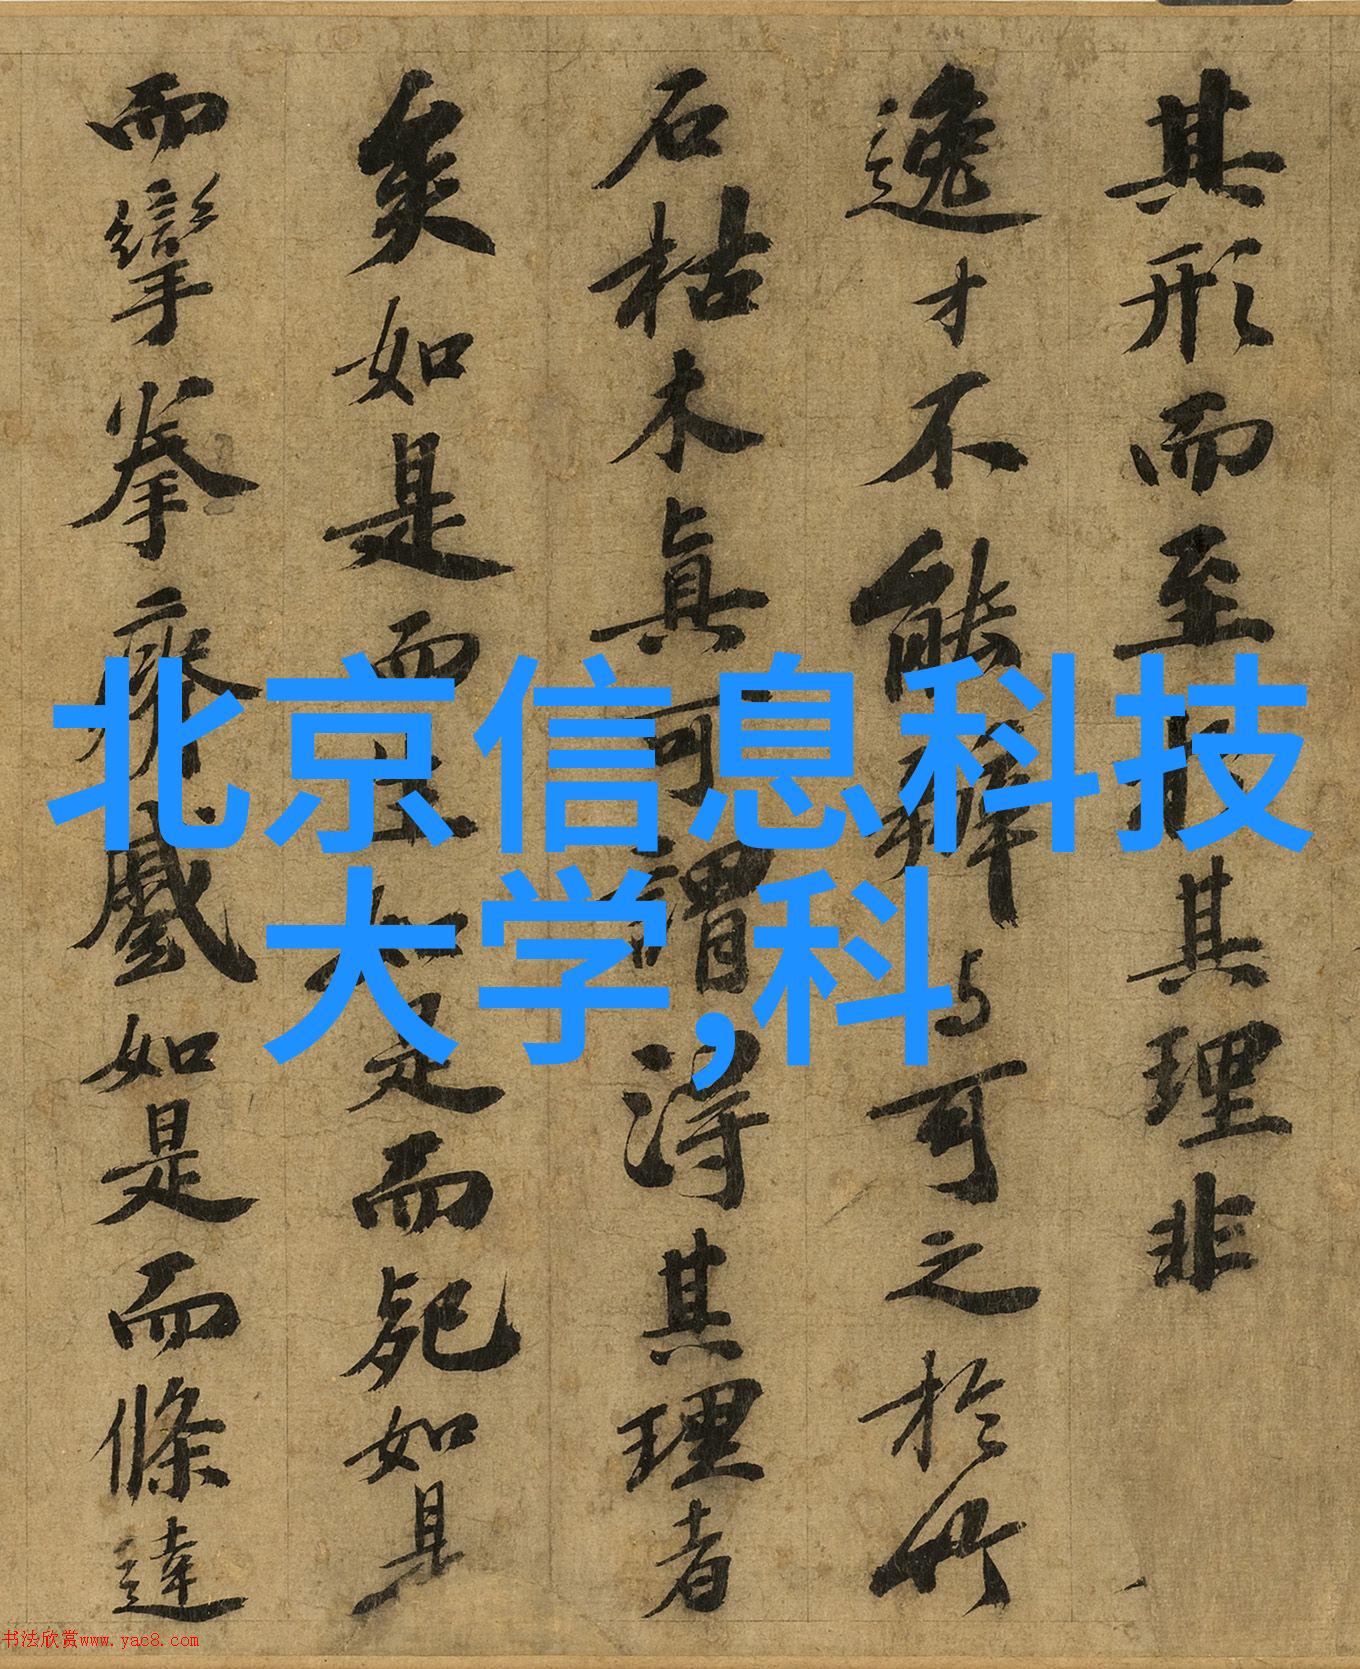 其形而至於其理非
逸才不能辨与可之於竹
石枯木眞可謂得其理者
矣如是而生如是而死如是
而攣拳瘠蹙如是而條達
北京信息科技
大学,科
书法欣赏www.yac8.com